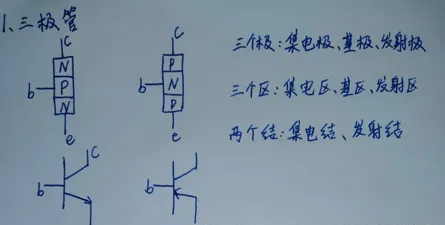 1、三极管
c c
N P
b P b N
N P
e e
三个极：集电极、基极、发射极
三个区：集电区、基区、发射区
两个结：集电结、发射结
c
b b